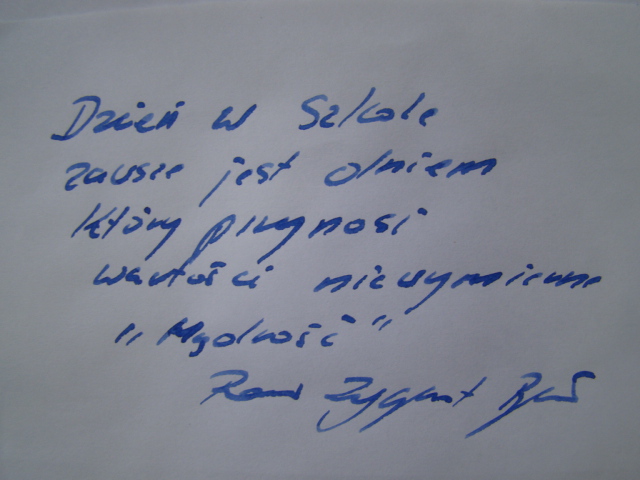 Dzień w Szkole
zawsze jest dniem
który przynosi
wartości niewymierne
„Mądrość”
Zygmunt